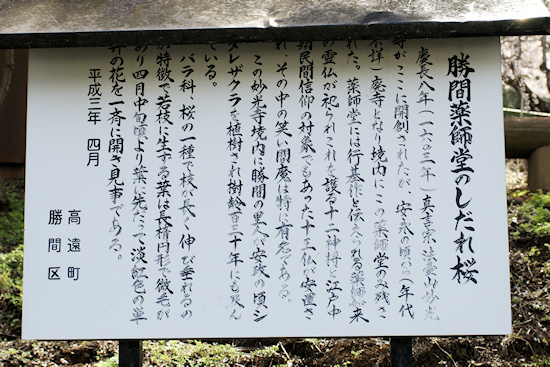 勝間薬師堂のしだれ桜
慶長八年(一六〇三年)真言宗、法雲山妙光
寺がここに開創されたが、安永の頃から(年代
不詳)廃寺となり境内にこの薬師堂のみ残さ
れた。薬師堂には行基作と伝えられる薬師如来
の霊仏が祀られこれを護る十二神将と江戸中
期民間信仰の対象でもあった十三仏が安置さ
れ、その中の笑い閻魔は特に有名である。
この妙光寺境内に勝間の里人が安政の頃シ
ダレザクラを植樹され樹齢百三十年にも及ん
でいる。
バラ科 桜の一種で枝が長く伸び垂れるの
が特徴で若枝に生ずる葉は長楕円形で微毛が
あり四月中旬頃より葉に先だって淡紅色の単
弁の花を一斉に開き見事である。
平成三年 四月
高遠町
勝間区